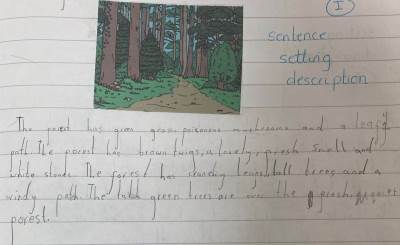 I
sentence
setting
description
The porest has green grass, poisonous mushrooms and a leafy
path. The porest has brown twigs, a lovely, presh smell and
white stones. The forest has crunchy leaves, tall trees and a
windy path. The tall green trees are over the presh
porest.